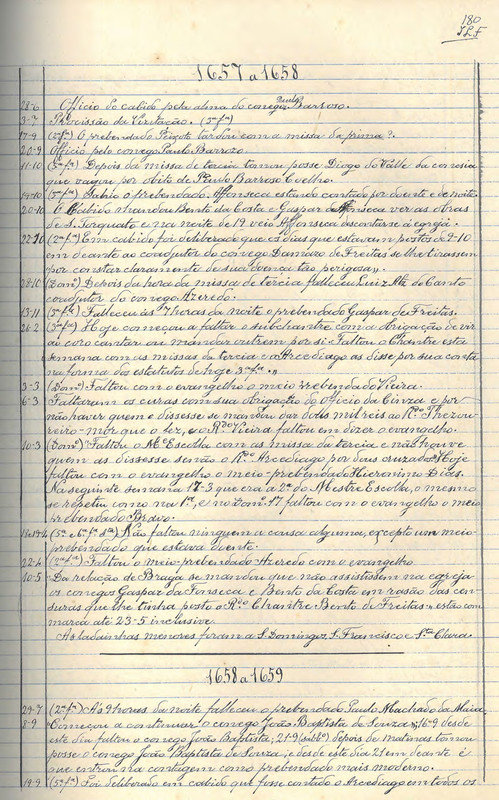 180
J.L.F
1657 a 1658
28-6 Officio do cabido pela alma do conego Paulo Barroso.
3-7 Procissão da Visitação. (3ª fª)
17-9 (2ª fª) O prebendado Peixoto tardou com a missa da prima?.
20-9 Officio pelo conego Paulo Barrozo
11-10 (5ª fª) Depois da missa de tercia tomou posse Diogo do Valle da conesia
que vagou por obito de Paulo Barroso Coelho.
19-10 (6ª fª) Sahio o prebendado Affonseca estando contado por doente e de noite.
20-10 O Cabido mandou Bento da Costa e Gaspar da Affonseca ver as obras
de S. Torquato e na noite de 19 veio Affonseca descontar-se á egreja.
22-10 (2ª fª) Em cabido foi deliberado que os dias que estavam postos de 9-10
em deante ao coadjutor do conego Damazo de Freitas se lhe tirassem
por constar claramente de sua doença tão perigosa„.
28-10 (Domº) Depois da hora da missa de tercia falleceu Luiz do Canto
coadjutor do conego Azeredo.
15-11 (5ª fª) Falleceu ás horas da noite o prebendado Gaspar de Freitas.
26-2 (3ª fª) Hoje começou a faltar o subchantre com a obrigação de vir
ao coro cantar ou mandar outrem por si. Faltou o Chantre esta
semana com as missas da tercia e o Arcediago as disse por sua conta
na forma dos estatutos de hoje 3ª fª.„
3-3 (Domº) Faltou com o evangelho o meio prebendado Vieira.
6-3 Faltaram os curas com sua obrigação do Oficio da Cinza e por
não haver quem o dissesse se mandou dar dous mil reis ao Rdo Thezou-
reiro-mór que o fez, e o Rdo Vieira faltou em dizer o evangelho.
10-3 (Domº) "Faltou o Me Escolha com as missas da tercia e não houve
quem as dissesse senão o Rdo Arcediago por dous cruzados. Hoje
faltou com o evangelho o meio-prebendado Hieronimo Dias.
Na seguinte semana 17-3 que era a 2ª do Mestre Escolha, o mesmo
se repetiu como na 1ª, e no Domº 17 faltou com o evangelho o meio
prebendado Bravo.
(5ª e 6ª fª Sª) Não faltou ninguem a cousa alguma, excepto um meio
prebendado que estava doente.
22-4 (2ª fª) Faltou o meio-prebendado Azeredo com o evangelho
10-5 Da relação de Braga se mandou que não assistissem na egreja
os conegos Gaspar da Fonseca e Bento da Costa em rasão das cen-
suras que lhe tinha posto o Rdo Chantre Bento de Freitas e estão com
marca até 23-5 inclusive.
As ladainhas menores foram a S. Domingos, S. Francisco e Sta Clara.
1658 a 1659
29-7 (2ª fª) Ás 9 horas da noite falleceu o prebendado Paulo Machado da Maia.
8-9 "Começou a continuar o conego João Baptista de Souza„; 16-9 desde
este dia faltou o conego João Baptista; 21-9 (sabbº) depois de matinas tomou
posse o conego João Baptista de Souza, e desde este dia 21 em deante é
que entrou na contagem como prebendado mais moderno.
19-9 (5ª fª) Foi deliberado em cabido que fosse contado o Arcediago em todos os